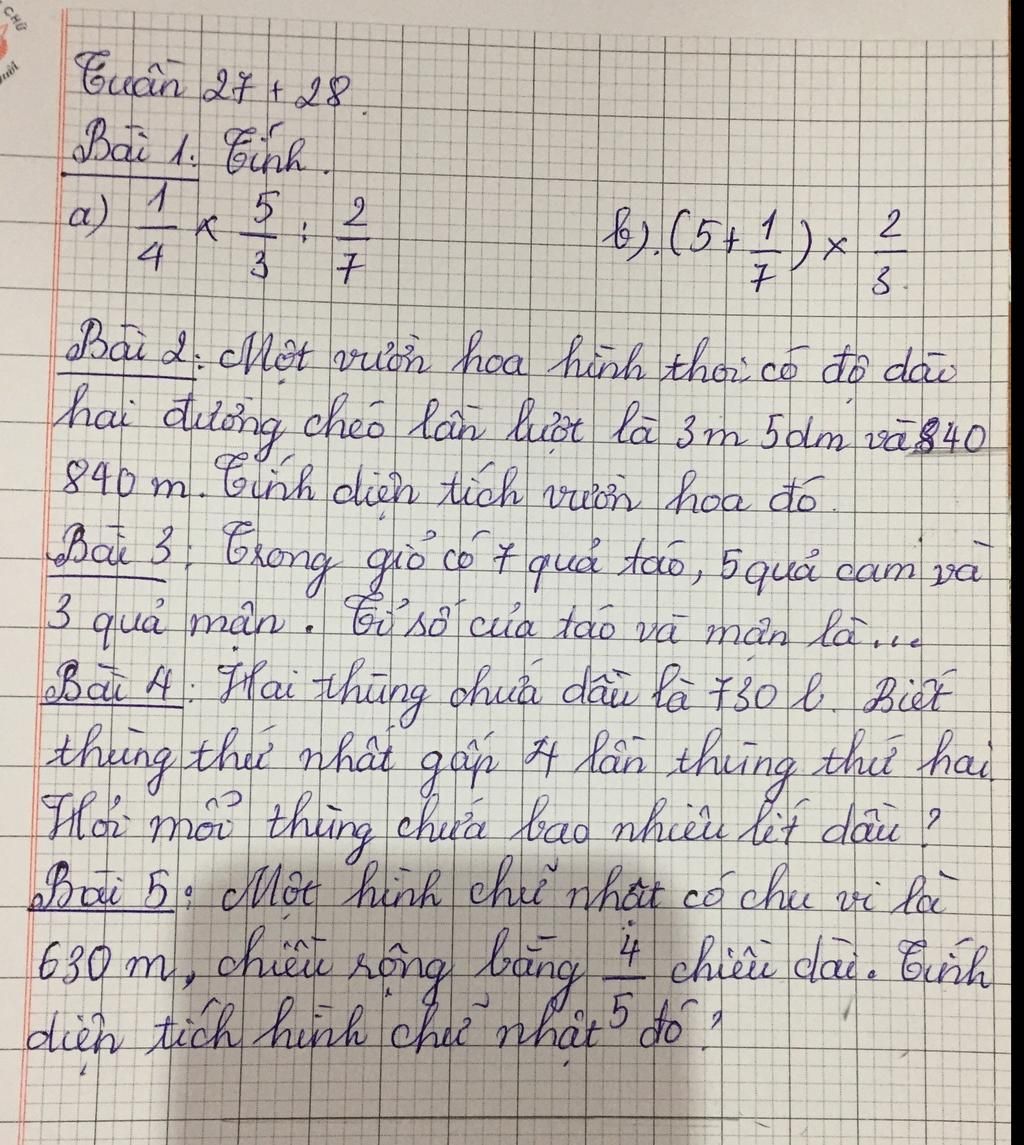 CHỮ
người
Tuần 27 + 28.
Bài 1: Tính.
a) 1/4 × 5/3 : 2/7 b). (5 + 1/7) × 2/3
Bài 2: Một vườn hoa hình thoi có độ dài
hai đường chéo lần lượt là 3m 5dm và 840
840 m. Tính diện tích vườn hoa đó.
Bài 3: Trong giỏ có 7 quả táo, 5 quả cam và
3 quả mận. Tỉ số của táo và mận là...
Bài 4: Hai thùng chứa dầu là 730 l. Biết
thùng thứ nhất gấp 4 lần thùng thứ hai.
Hỏi mỗi thùng chứa bao nhiêu lít dầu?
Bài 5: Một hình chữ nhật có chu vi là
630 m, chiều rộng bằng 4/5 chiều dài. Tính
diện tích hình chữ nhật đó?